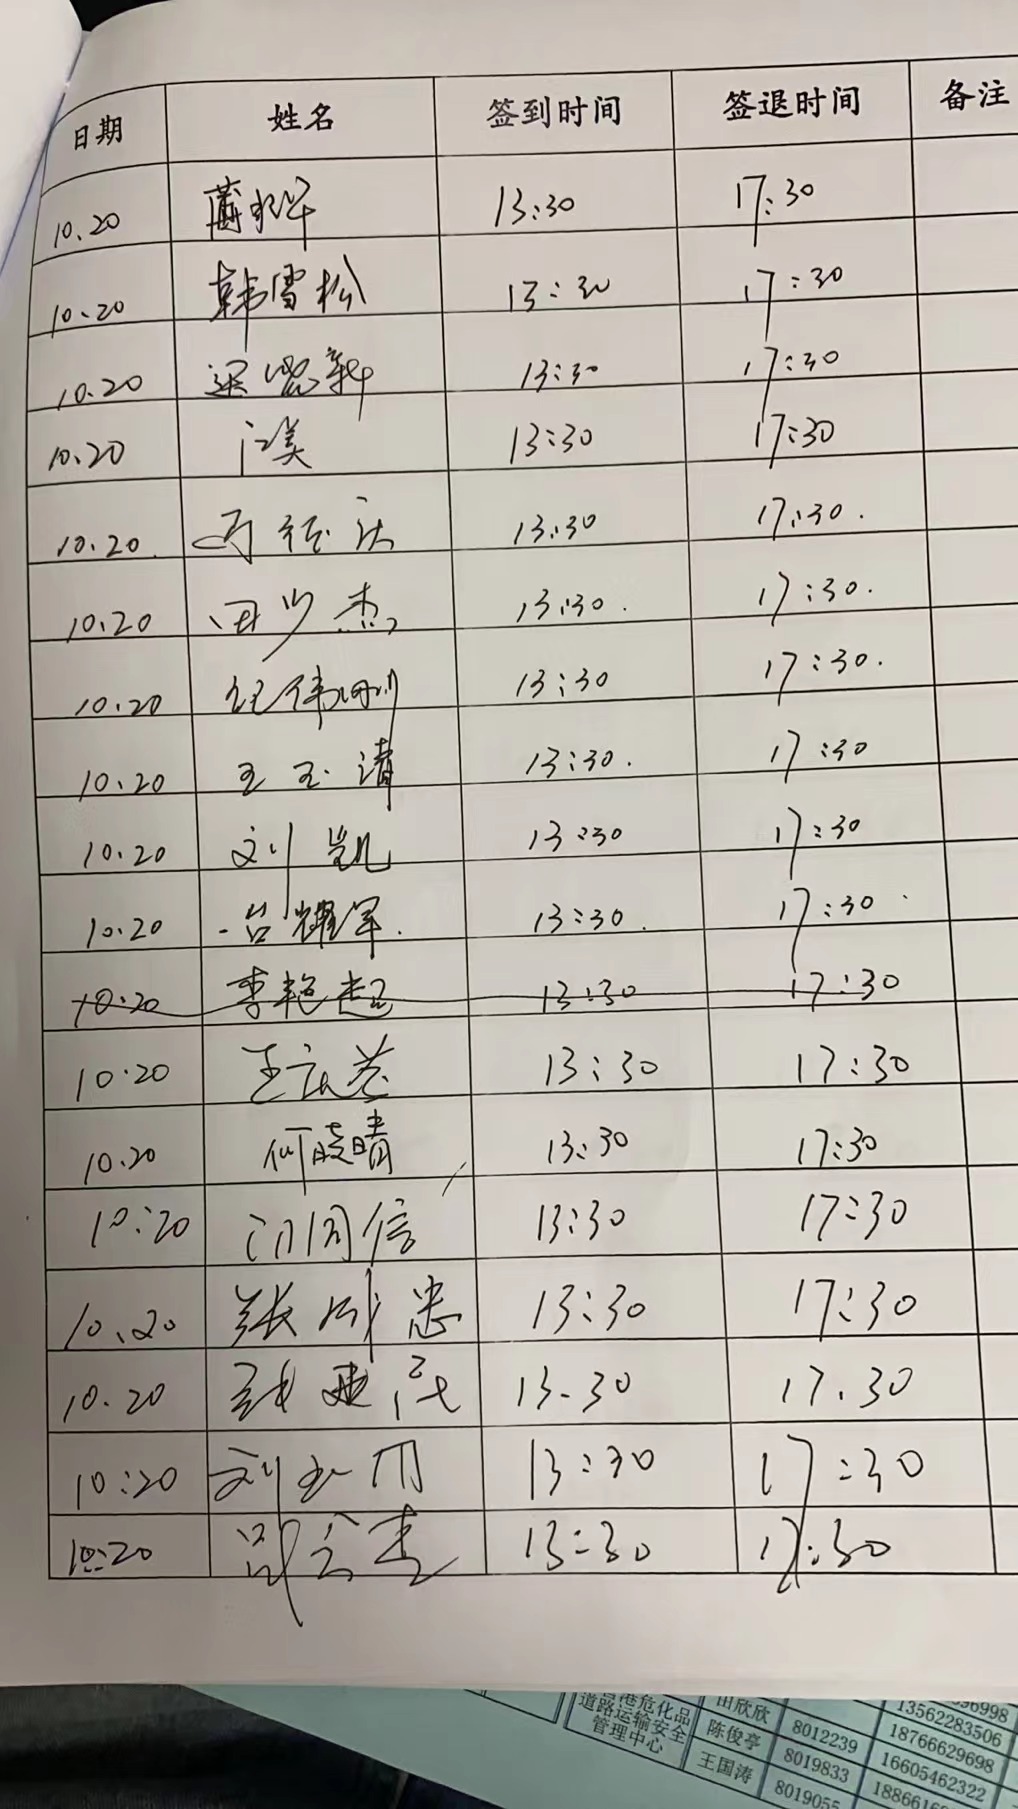 日期 姓名 签到时间 签退时间 备注
10.20 13:30 17:30
10.20 韩雪松 13:30 17:30
10.20 13:30 17:30
10.20 江美 13:30 17:30
10.20 13:30 17:30.
10.20 田少杰 13:30. 17:30.
10.20 纪伟刚 13:30 17:30.
10.20 王玉清 13:30. 17:30
10.20 刘凯 13:30 17:30
10.20 台耀军. 13:30. 17:30
10:20 李艳超 13:30 17:30
10.20 13:30 17:30
10.20 何晓晴 13:30 17:30
10:20 门同信 13:30 17:30
10.20 张成忠 13:30 17:30
10.20 13.30 17.30
10:20 刘玉用 13:30 17:30
10:20 13:30 17:30
港危化品
道路运输安全
管理中心
田欣欣
陈俊亭 8012239
王国涛 8019833
8019055
96998
13562283506
18766629698
16605462322
188661